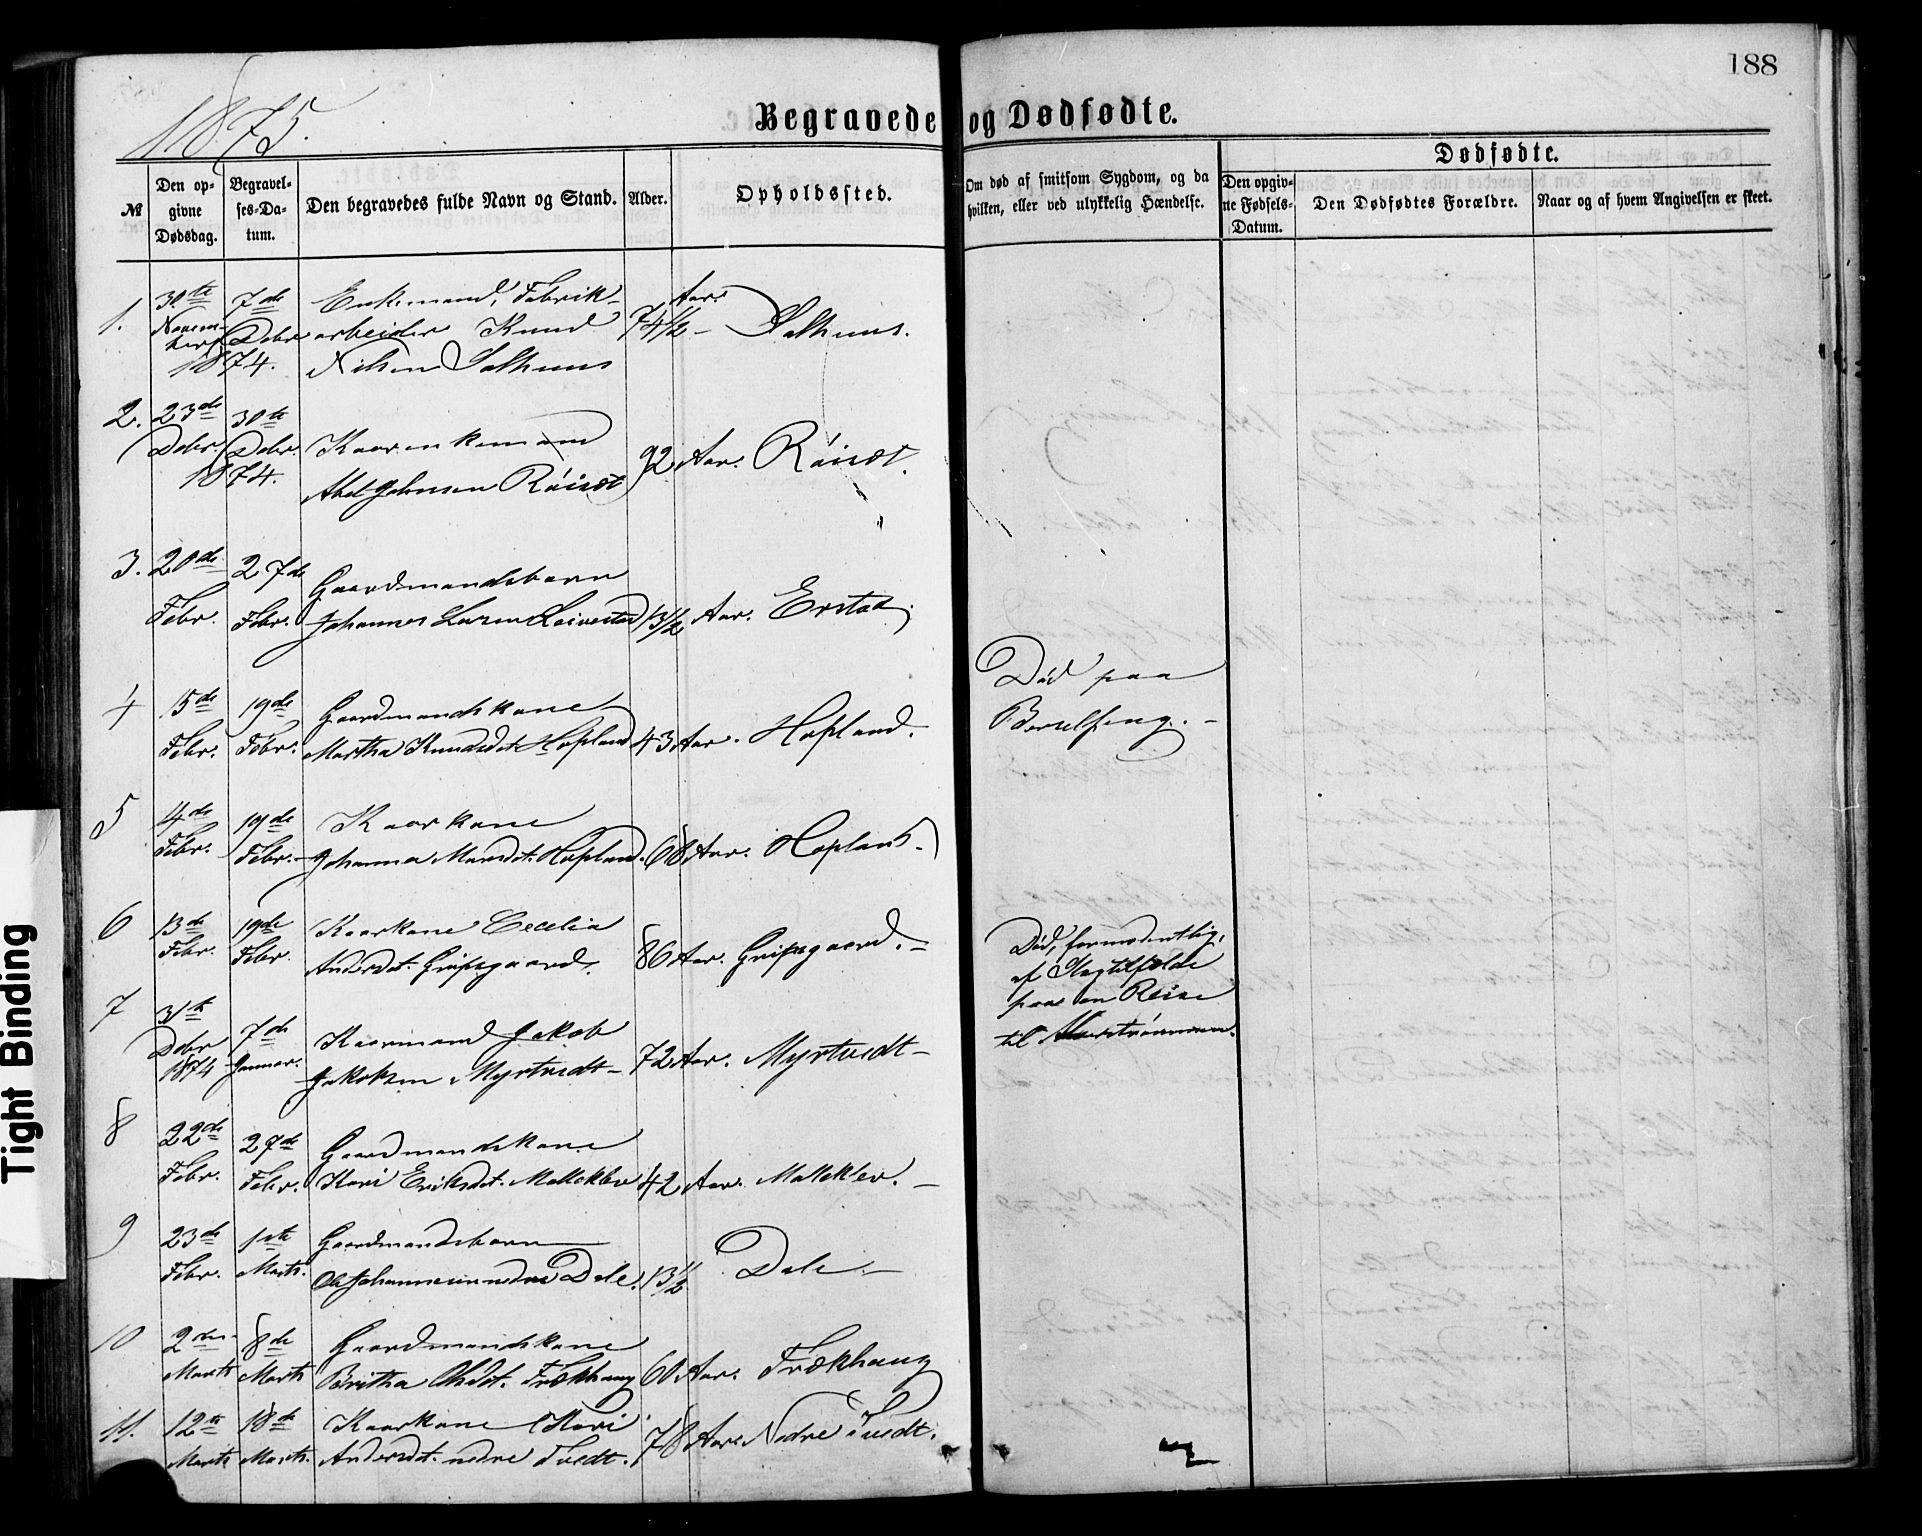 188
1875.
Begravede og Dødfødte.
№
Den opgivne Dødsdag.
Begravelses-Datum.
Den begravedes fulde Navn og Stand.
Alder.
Opholdssted.
Om død af smitsom Sygdom, og da hvilken, eller ved ulykkelig Hændelse.
Dødfødte.
Den opgivne Fødsels-Datum.
Den Dødfødtes Forældre.
Naar og af hvem Angivelsen er skeet.
1. 30te 7de Enkemand, Fabrik- Aar.
November Debr arbeider Knud 74 1/2 – Salhuus.
1874. Nilsen Salhuus
2. 23de 30te
Debr. Debr. Kaarenkemand 92 Aar. Röiset.
1874. Abel Johnsen Röiset
3. 20de 27de Gaardmandsbarn
Febr. Febr. Johannes Larsen 13 1/2 Aar. Erstad.
4 15de 19de Gaardmandskone Död paa
Febr. Febr. Martha Knudsdt. Hopland 43 Aar. Hopland. Barselseng. –
5 4de 19de Kaarkone
Febr. Febr. – Johanna Monsdt. Hopland. 68 Aar. Hopland –
6 13de 19de Kaarkone Cecelia
Febr. Febr. Andersdt. Gripsgaard. 86 Aar. Gripsgaard. –
Död, formodentlig,
af Slagtilfælde
paa en Reise
til
7 31te 7de Kaarmand Jakob
Debr 1874 Januar. Jakobsen Myrtvedt – 72 Aar. Myrtvedt –
8 22de 27de Gaardmandskone
Febr. Febr. Kari Eriksdt. Molleklev 42 Aar. Molleklev. –
9 23de 1ste Gaardmandsbarn
Febr. Marts. Ole Johannesen nedre Dale. 13 1/2 Dale. –
10 2den 8de Gaardmandskone
Marts Marts Britha Olsdt. Frækhaug 60 Aar. Frækhaug
11. 12te 18de Kaarkone Kari
Marts Marts. Andersdt. nedre Tvedt. 78 Aar. Nedre Tvedt.
Tight Binding